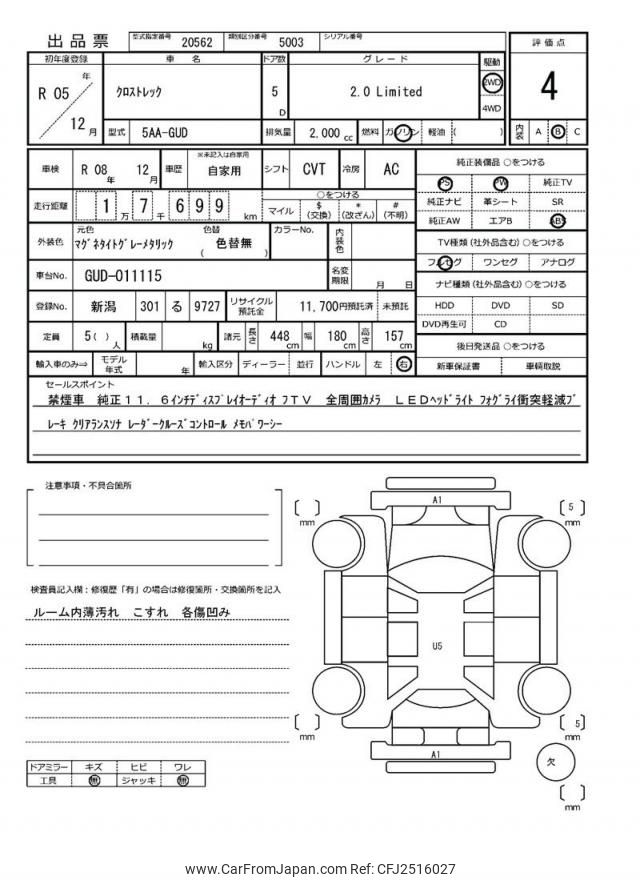 出品票 型式指定番号 20562 類別区分番号 5003 シリアル番号
評価点
4
内装 A B C
初年度登録 車名 ドア数 グレード 駆動
R 05 年 12 月
クロストレック 5 D 2.0 Limited 2WD 4WD
型式 5AA-GUD 排気量 2,000 cc 燃料 ガソリン 軽油 ( )
車検 R 08 年 12 月 車歴 ※未記入は自家用 自家用 シフト CVT 冷房 AC
走行距離 1 万 7 千 6 9 9 km
○をつける
マイル $(交換) *(改ざん) #(不明)
外装色 元色 マグネタイトグレーメタリック 色替 色替無 ( ) カラーNo. 内装色
車台No. GUD-011115 名変期限 月 日
登録No. 新潟 301 る 9727 リサイクル預託金 11,700円預託済 未預託
定員 5( ) 人 積載量 kg 諸元 長さ 448 cm 幅 180 cm 高さ 157 cm
輸入車のみ⇒ モデル年式 年 輸入区分 ディーラー 並行 ハンドル 左 右
純正装備品 ○をつける
PS PW 純正TV
純正ナビ 革シート SR
純正AW エアB ABS
TV種類 (社外品含む) ○をつける
フルセグ ワンセグ アナログ
ナビ種類 (社外品含む) ○をつける
HDD DVD SD
DVD再生可 CD
後日発送品 ○をつける
新車保証書 車輌取説
セールスポイント
禁煙車 純正11.6インチディスプレイオーディオ フTV 全周囲カメラ LEDヘッドライト フォグライ衝突軽減ブ
レーキ クリアランスソナ レーダークルーズコントロール メモパワーシー
注意事項・不具合箇所
検査員記入欄:修復歴「有」の場合は修復箇所・交換箇所を記入
ルーム内薄汚れ こすれ 各傷凹み
ドアミラー キズ ヒビ ワレ
工具 無 ジャッキ 無
A1
[ ] mm
[ 5 ] mm
U5
[ ] mm
[ 5 ] mm
A1
欠
[ ] mm
www.CarFromJapan.com Ref: CFJ2516027